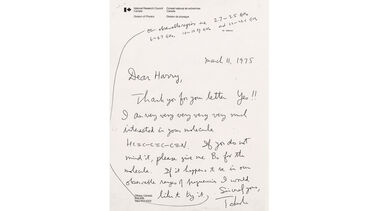 National Research Council Canada
Conseil national de recherches Canada
Division of Physics
Division de physique
Our observable regions are 2.7-3.5 GHz
March 11, 1975
Dear Harry,
Thank you for your letter Yes!!
I am very very very very much
interested in your molecule
HC≡C-C≡C-C≡N. If you do not
mind it, please give me B₀ for the
molecule. If it happens to be in our
observable ranges of frequencies I would
like to try it,
Sincerely yours,
Takeshi
Ottawa, Canada